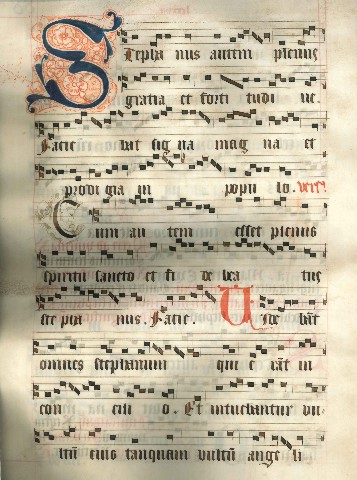 Stepha nus autem plenus
gratia et forti tudi ne.
Facie bat sig na mag na et
prodi gia in popu lo. Vers9
Cum au tem esset plenus
spiritu sancto et fi de bea tus
ste pha nus. Facie. Vide bāt
omnes stephanum qui e rāt in
con cili o. Et intuebantur vul
tū eius tanquam vultū ange li